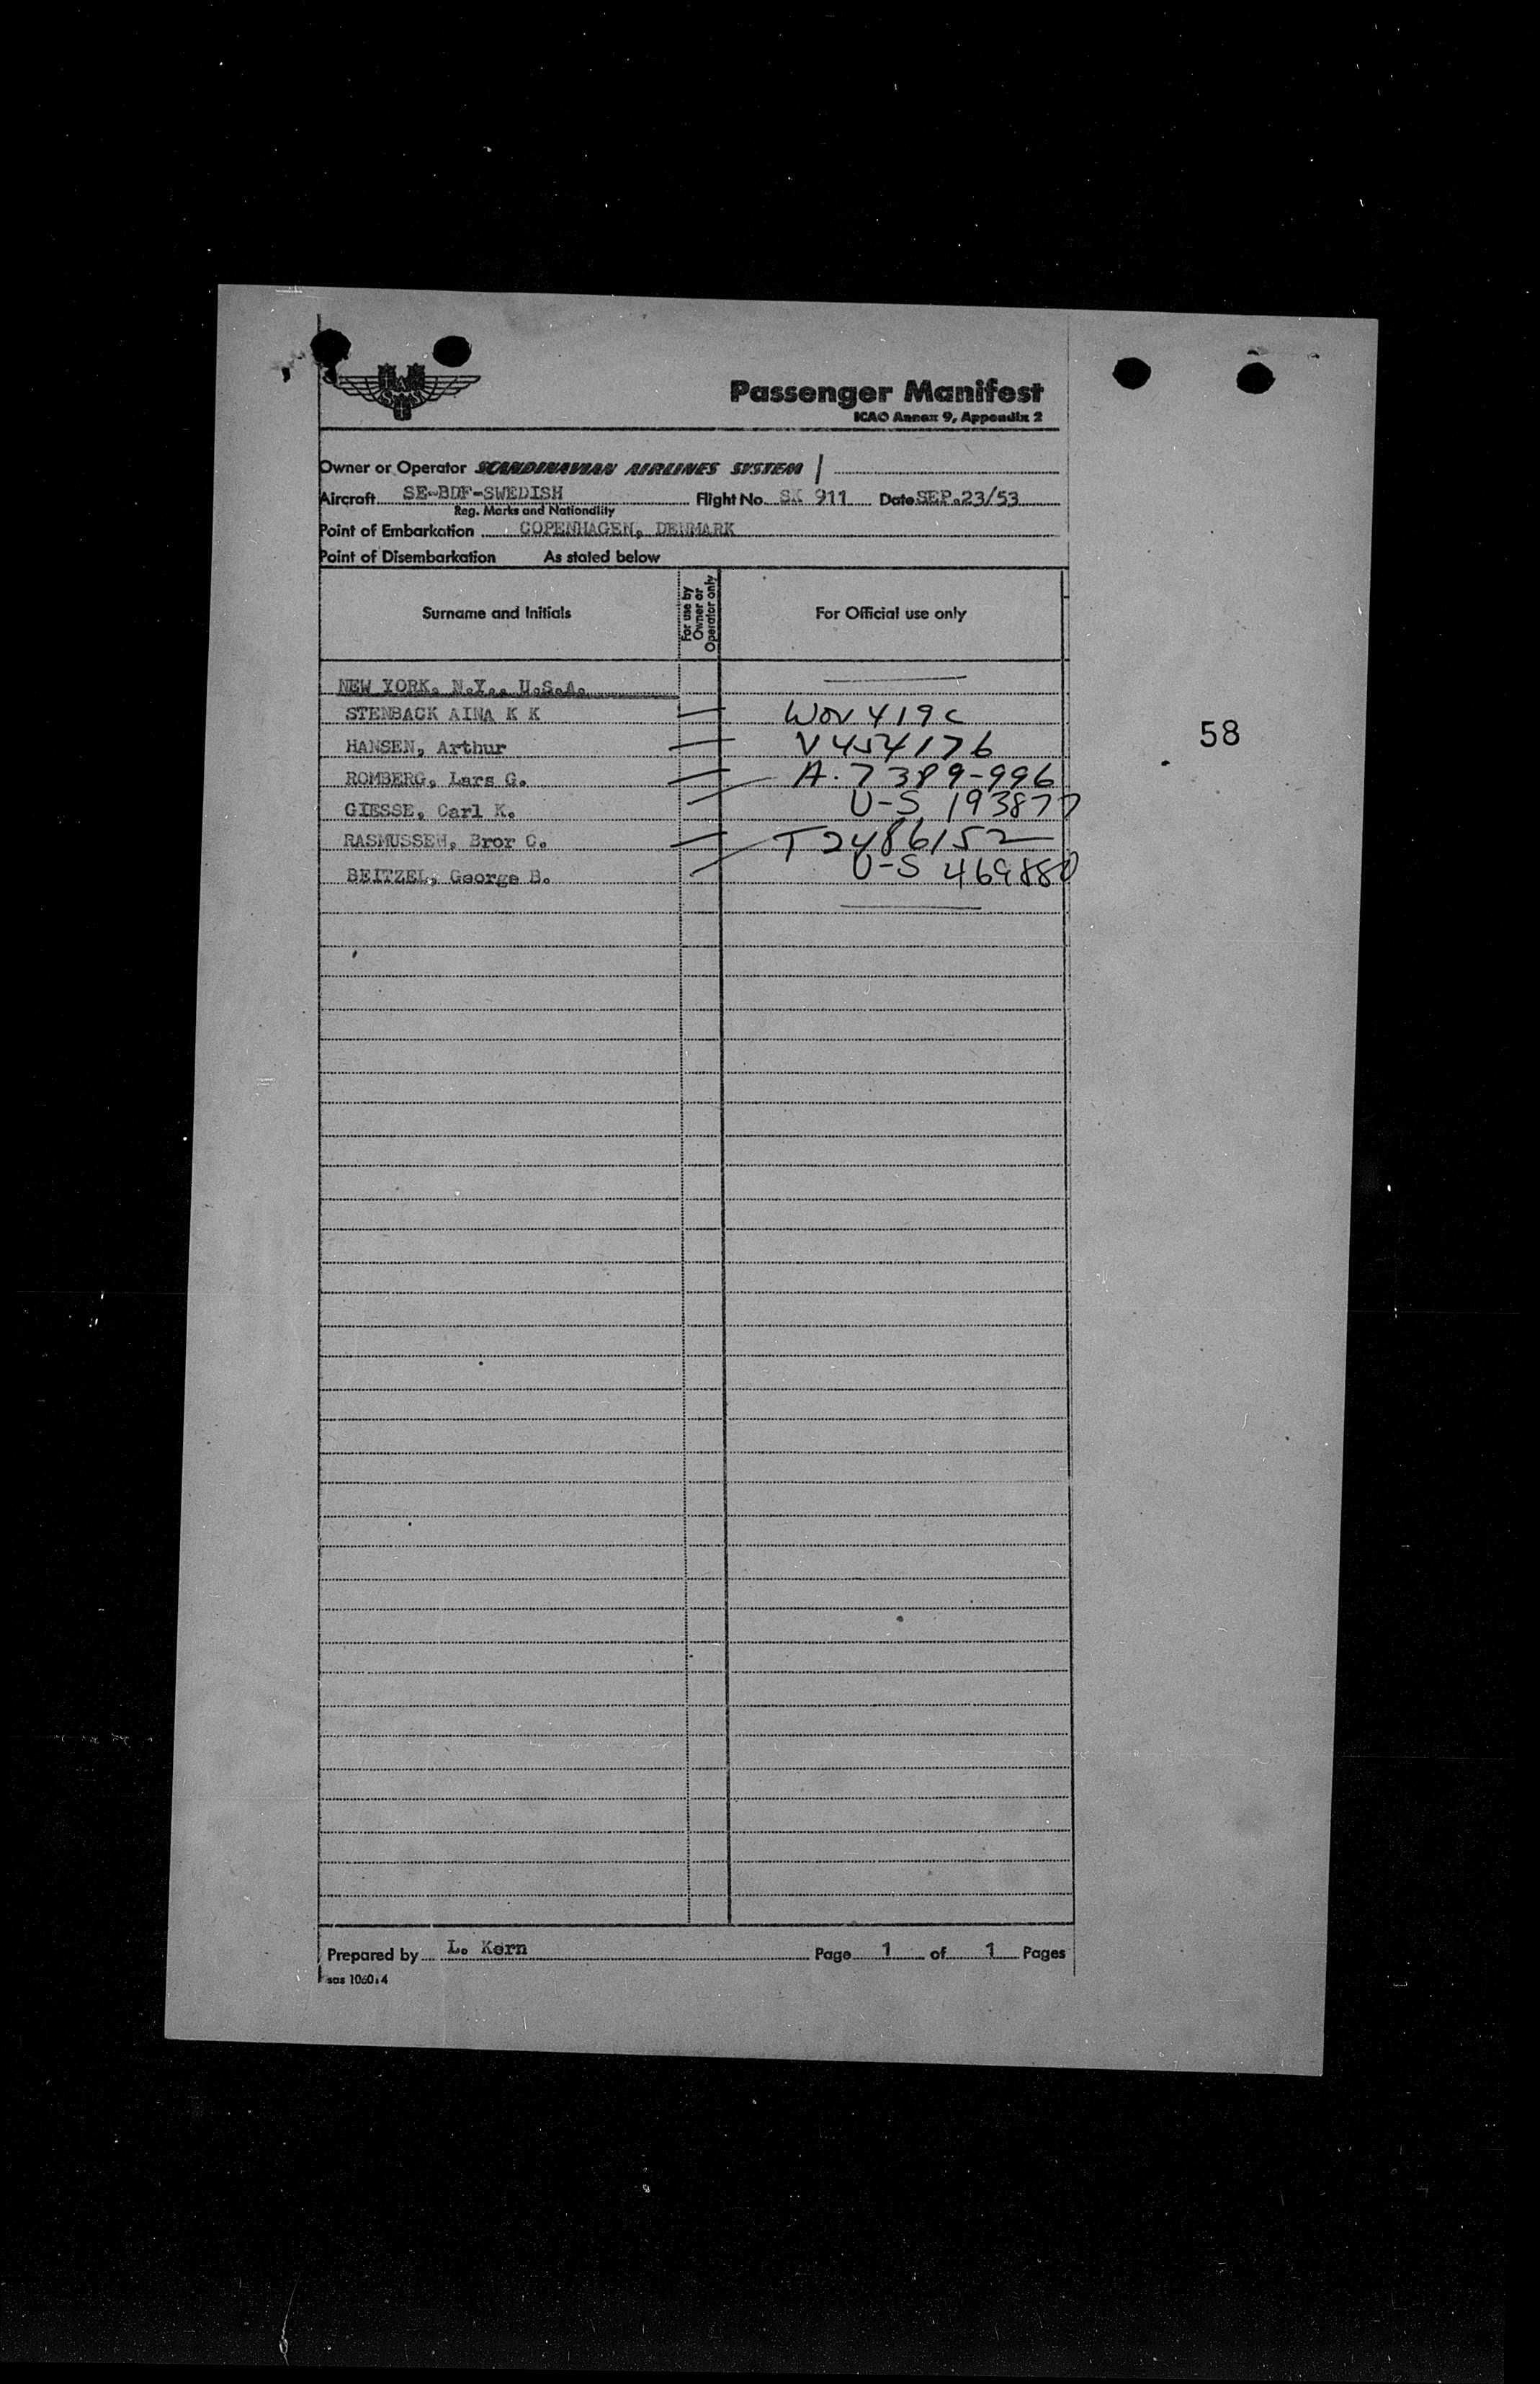 SAS
Passenger Manifest
ICAO Annex 9, Appendix 2
Owner or Operator SCANDINAVIAN AIRLINES SYSTEM /
Aircraft SE-BDF-SWEDISH Flight No. SK 911 Date SEP.23/53
Reg. Marks and Nationality
Point of Embarkation COPENHAGEN, DENMARK
Point of Disembarkation As stated below
Surname and Initials For use by Owner or Operator only For Official use only
NEW YORK, N.Y., U.S.A.
STENBACK AINA K K — WOV 419 C
HANSEN, Arthur — V454176
ROMBERG, Lars G. — A-7389-996
GIESSE, Carl K. — U-S 193877
RASMUSSEN, Bror C. — T2486152
BEITZEL, George B. — U-S 469880
58
Prepared by L. Kern Page 1 of 1 Pages
sas 1060:4